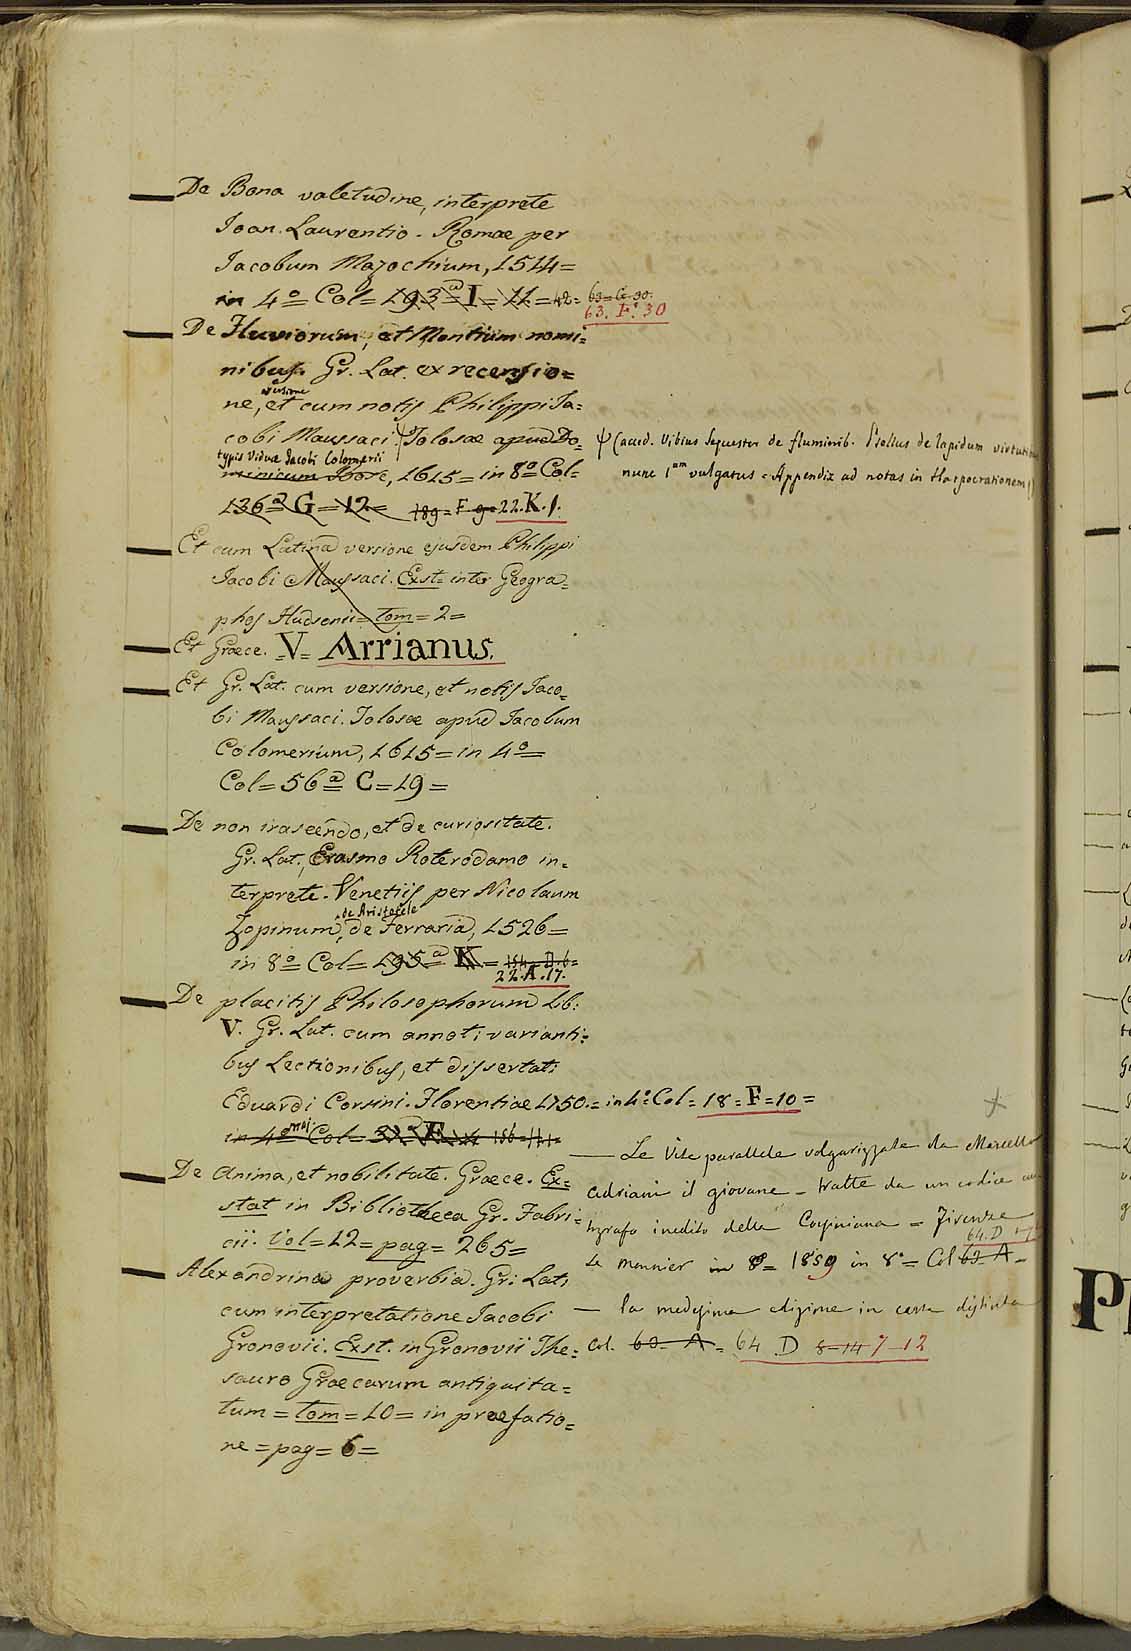 De Bona valetudine, interprete
Joan. Laurentio. Romae per
Jacobum Mazochium, 1514=
in 4º Col= 193ª= I= 11= 42= 63= G= 30.
63. F. 30
De Fluviorum, et Montium nomi=
nibus. Gr. Lat. ex recensio=
versione
ne, et cum notis Philippi Ja=
cobi Maussaci. Tolosae apud Do=
typis Viduae Jacobi Colomerii
minicum Bosc, 1615= in 8º Col=
136ª G= 12= 189= F 9= 22. K. 1.
ψ (acced. Vibius Sequester de fluminib. Psellus de lapidum virtutibus
nunc 1um vulgatus = Appendix ad notas in Harpocrationem)
Et cum Latina versione ejusdem Philippi
Jacobi Maussaci. Exst= inter Geogra=
phos Hudsonii= tom= 2=
Et Graece. =V= Arrianus.
Et Gr. Lat. cum versione, et notis Jaco=
bi Maussaci. Tolosae apud Jacobum
Colomerium, 1615= in 4º=
Col= 56ª= C= 19=
De non irascendo, et de curiositate.
Gr. Lat., Erasmo Roterodamo in=
terprete. Venetiis per Nicolaum
de Aristotele
Zopinum, de Ferraria, 1526=
in 8º= Col= 195ª= K= 154= D. 6=
22. A. 17.
De placitis Philosophorum Lib:
V. Gr. Lat. cum annot: varianti=
bus Lectionibus, et dissertat:
Eduardi Corsini. Florentiae 1750.= in 4º Col= 18= F= 10=
in 4º maj Col= F 156=
De Anima, et nobilitate. Graece. Ex=
stat in Bibliotheca Gr. Fabri=
cii. Vol= 12= pag= 265=
Alexandrina proverbia. Gr: Lat:
cum interpretatione Jacobi
Gronovii. Exst. in Gronovii The=
sauro Graecarum antiquita=
tum= tom= 10= in praefatio=
ne= pag= 6=
— Le Vite parallele volgarizzate da Marcello
Adriani il giovane – tratte da un codice au
tografo inedito della Corsiniana = Firenze
64. D
Le Monnier in 8º= 1859 in 8º= Col 63 A=
— la medesima edizione in carta distinta
Col. 60 A= 64 D 8-14 7-12